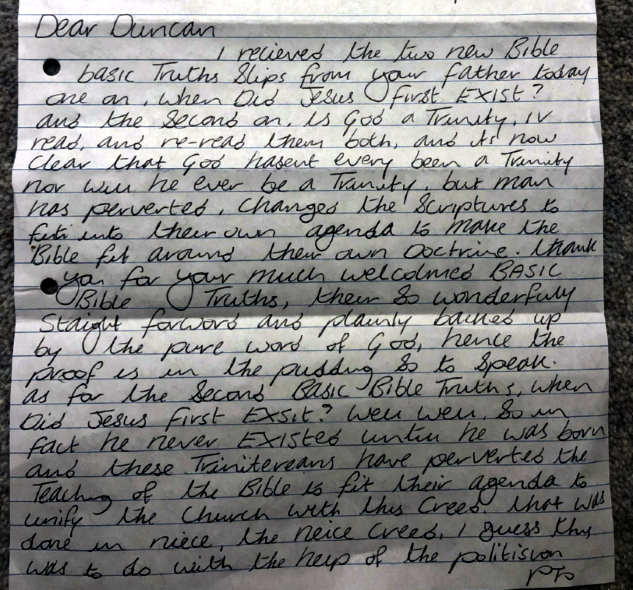 Dear Duncan
I relieved the two new Bible
basic Truths Slips from your father today
one on, when Did Jesus first EXIST?
and the second on, is God a Trunity, iv
read, and re-read them both, and its now
clear that God hasent every been a Trunity
nor will he ever be a Trunity, but man
has perverted, changes the Scriptures to
fit into their own agenda to make the
Bible fit around their own Doctrine. thank
you for your much welcolmed BASIC
Bible Truths, their So wonderfuly
Staight forword and plainly backed up
by the pure word of God, hence the
proof is in the pudding So to Speak.
as for the Second Basic Bible Truths, when
Did Jesus first EXSIT? Well well, So in
fact he never EXISTED until he was born
and these Trinitereans have perverted the
Teaching of the Bible to fit their agenda to
unify the Church with this Creed. that was
done in niece, the neice Creed, I guess this
was to do with the help of the politision
PTO